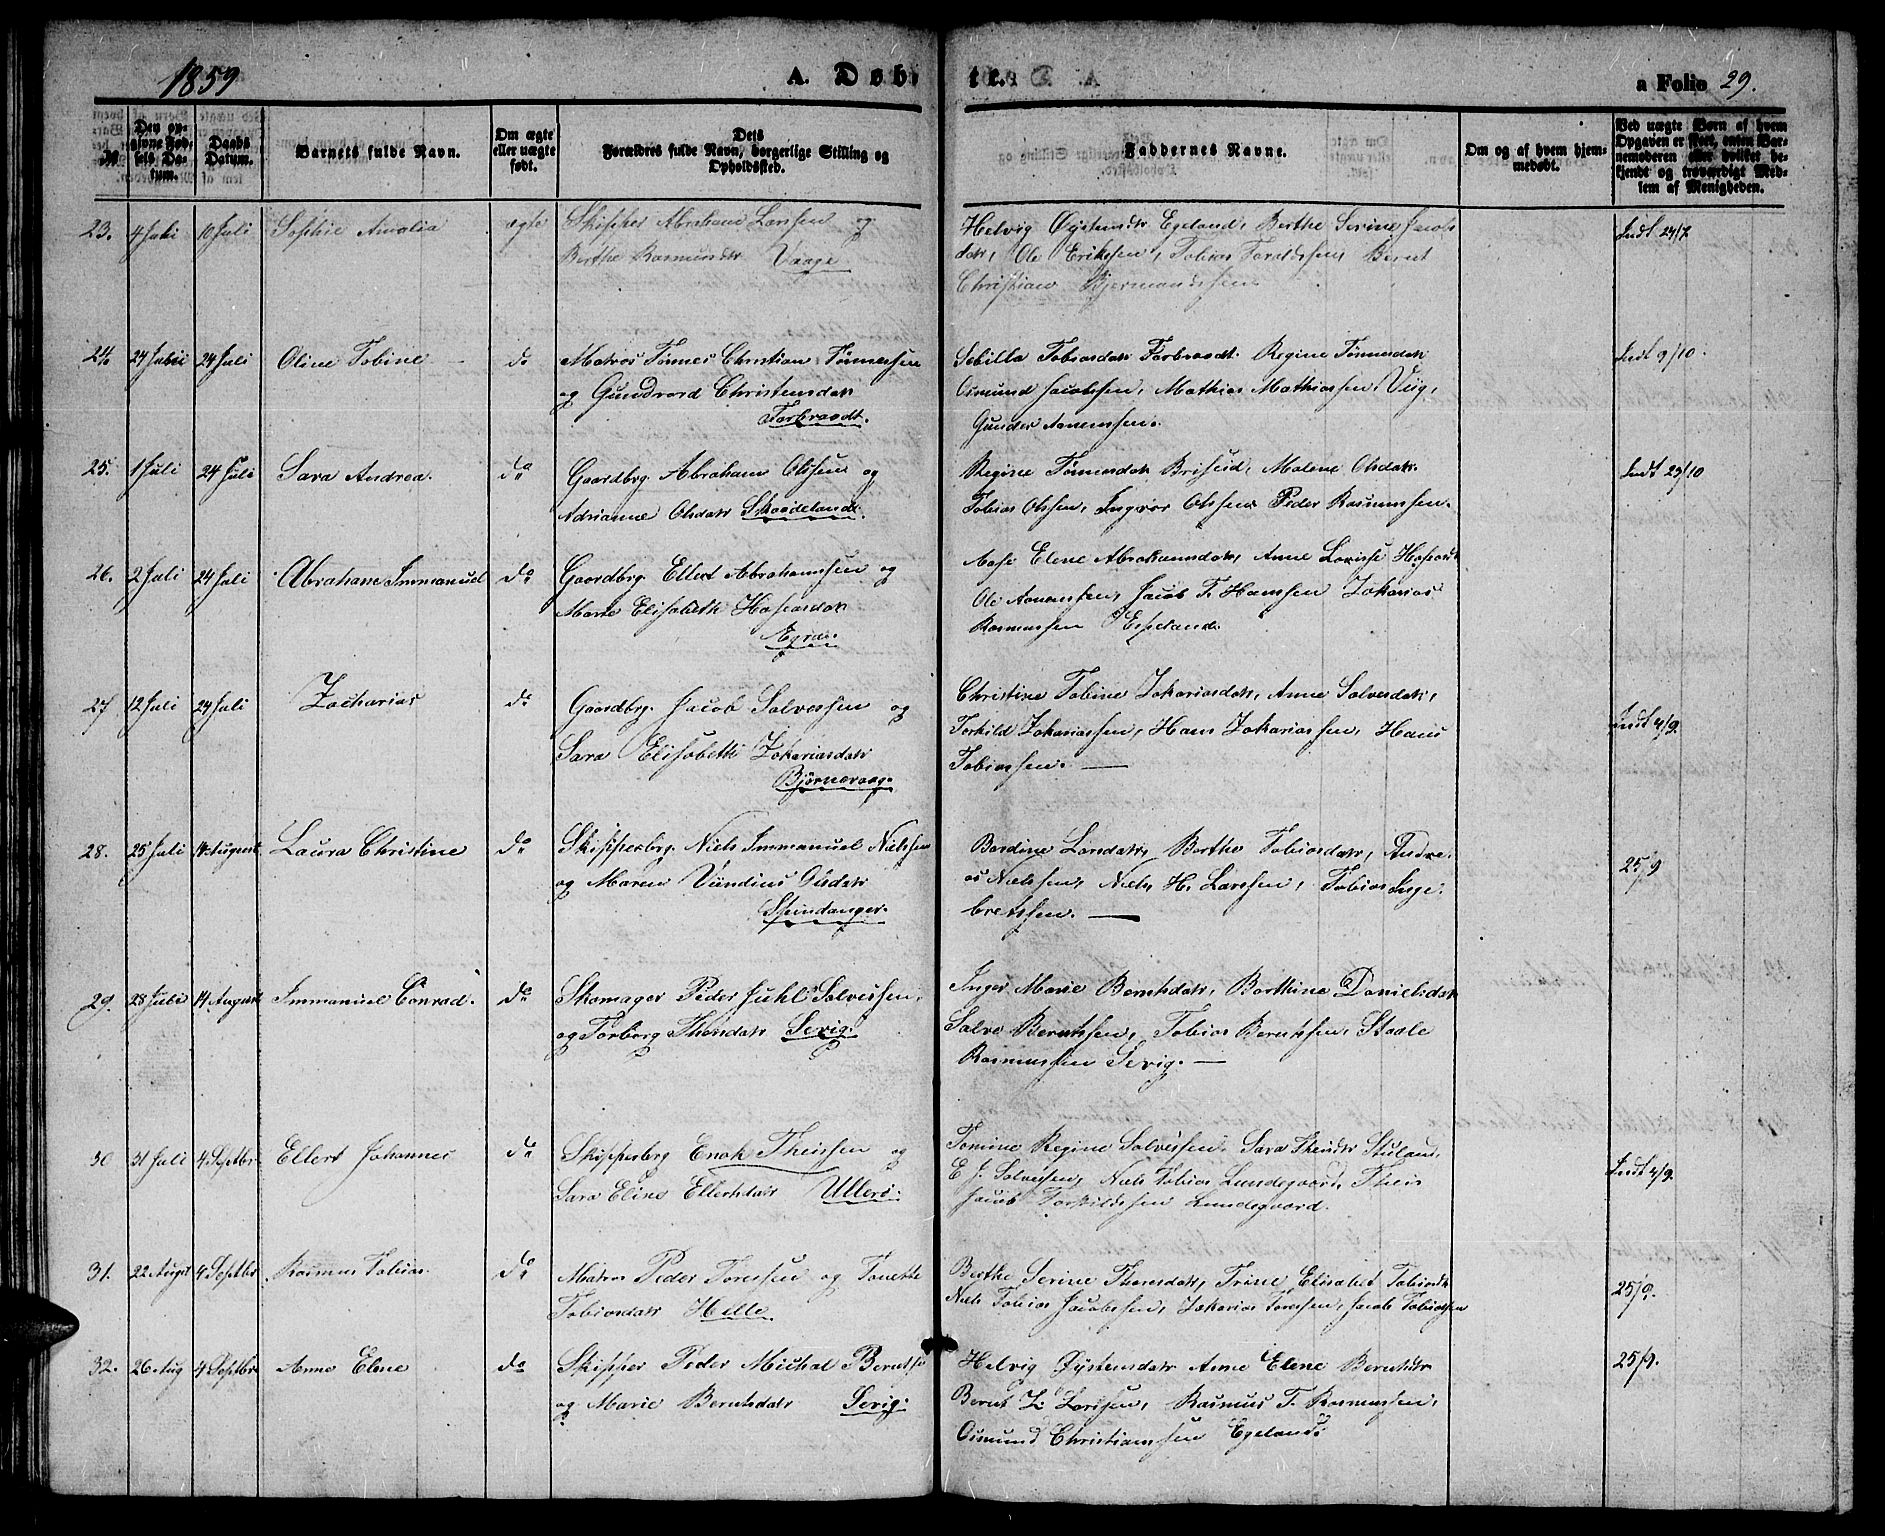 1859
A. Døbte.
a Folio 29.
№
Den opgivne Fødsels Datum.
Daabs Datum.
Barnets fulde Navn.
Om ægte eller uægte født.
Dets Forældres fulde Navn, borgerlige Stilling og Opholdssted.
Faddernes Navne.
Om og af hvem hjemmedøbt.
Ved uægte Børn af hvem Opgaven er skeet, enten Barnemoderen eller hvilket bekjendt og troværdigt Medlem af Menigheden.
23. 4 Juli 10 Juli Sophie Amalia ægte Skipper Abraham Larssen og
Berthe Rasmusdtr Vaage
Helvig Øystensdtr Egeland, Berthe Serine Jacobs
datr, Ole Erikssen, Tobias Toraldssen, Bernt
Christian
Indt 24/7
24. 24 Juli Oline Tobine do Matros Tønnes Christian Tønnessen
og Gundvord Christensdatr
Farbrodt.
Sebilla Tobiasdatr Farbrodt. Regine Tønnesdatr
Osmund Jacobssen, Mathias Mathiassen,
Gunder Aanenssen.
Indt 9/10.
25. 1 Juli 24 Juli Sara Andrea. do Gaardbrg. Abraham Olssen og
Adrianne Olsdatr Skoedeland.
Regine Tønnesdatr Briseid, Malene Olsdatr.
Tobias Olssen, Ingvar Olssen, Peder Rasmussen.
Indt 23/10
26. 2 Juli 24 Juli Abraham Immanuel do Gaardbrg. Ellert Abrahamssen og
Marie Elisabeth
Aase Elene Abrahamsdatr, Anne Lovisse
Ole Aanenssen, Jacob T. Hanssen Zakarias
Rasmussen Espeland.
27 12 Juli 24 Juli Zacharias do Gaardbrg. Jacob Salvessen og
Sara Elisabeth Zakariasdatr
Bjørnevaag.
Christine Tobine Zakariasdatr, Anne Salvesdatr,
Torkild Zakariassen, Hans Zakariassen, Hans
Tobiassen.
Indt 4/9.
28. 25 Juli 14 August Laura Christine do Skipperbrg. Niels Immanuel Nielssen
og Maren Olsdatr
Spindanger.
Berthe Tobiasdatr, Andre-
as Nielssen, Niels H. Larssen, Tobias Inge-
bretssen.
25/9
29. 28 Juli 14 August Immanuel Conrad. do Skomager Peder Juhl Salvessen,
og Torborg Sevig.
Inger Marie Berntsdatr, Berthine Danielsdatr
Salve Berntssen, Tobias Berntssen, Staale
Rasmussen Sevig.
30 31 Juli 4 Septbr Ellert Johannes do Skipperbrg Enok Theissen og
Sara Eline Ellertsdatr Ullerø.
Tomine Regine Salvessen, Sara Theisdtr Stuland,
E. J. Salvessen, Niels Tobias Lundegaard, Theis
Jacob Torkildssen Lundegaard.
Indt 4/9.
31. 22 August 4 Septbr Rasmus Tobias. do Matros Peder Toressen og Tonette
Tobiasdatr Hille.
Berthe Serine Thoresdatr, Trine Elisabet Tobiasdtr
Niels Tobias Jacobssen, Zakarias Toressen, Jacob Tobiassen
25/9.
32. 26 Aug 4 Septbr Anne Elene do Skipper Peder Michal Berntsen
og Marie Berntsdatr Sevig.
Helvig Øystensdatr Anne Elene Berntsdtr
Bernt L. Larssen, Rasmus T. Rasmussen,
Osmund Christianssen Egeland.
25/9.